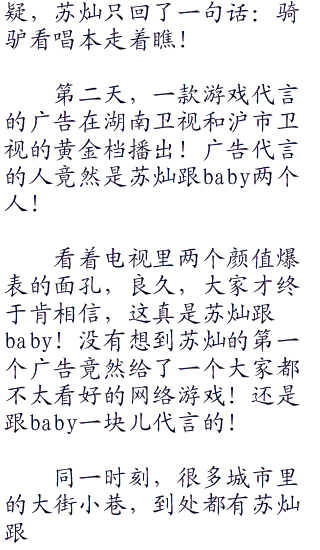 疑，苏灿只回了一句话：骑
驴看唱本走着瞧！
第二天，一款游戏代言
的广告在湖南卫视和沪市卫
视的黄金档播出！广告代言
的人竟然是苏灿跟baby两个
人！
看着电视里两个颜值爆
表的面孔，良久，大家才终
于肯相信，这真是苏灿跟
baby！没有想到苏灿的第一
个广告竟然给了一个大家都
不太看好的网络游戏！还是
跟baby一块儿代言的！
同一时刻，很多城市里
的大街小巷，到处都有苏灿
跟